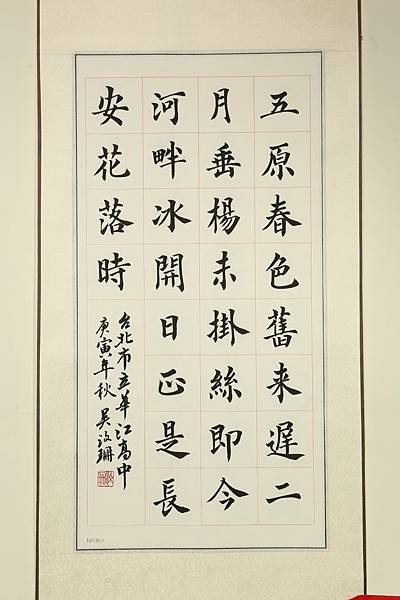 五原春色舊来遲二
月垂楊未掛絲即今
河畔冰開日正是長
安花落時
台北市立華江高中
庚寅年秋